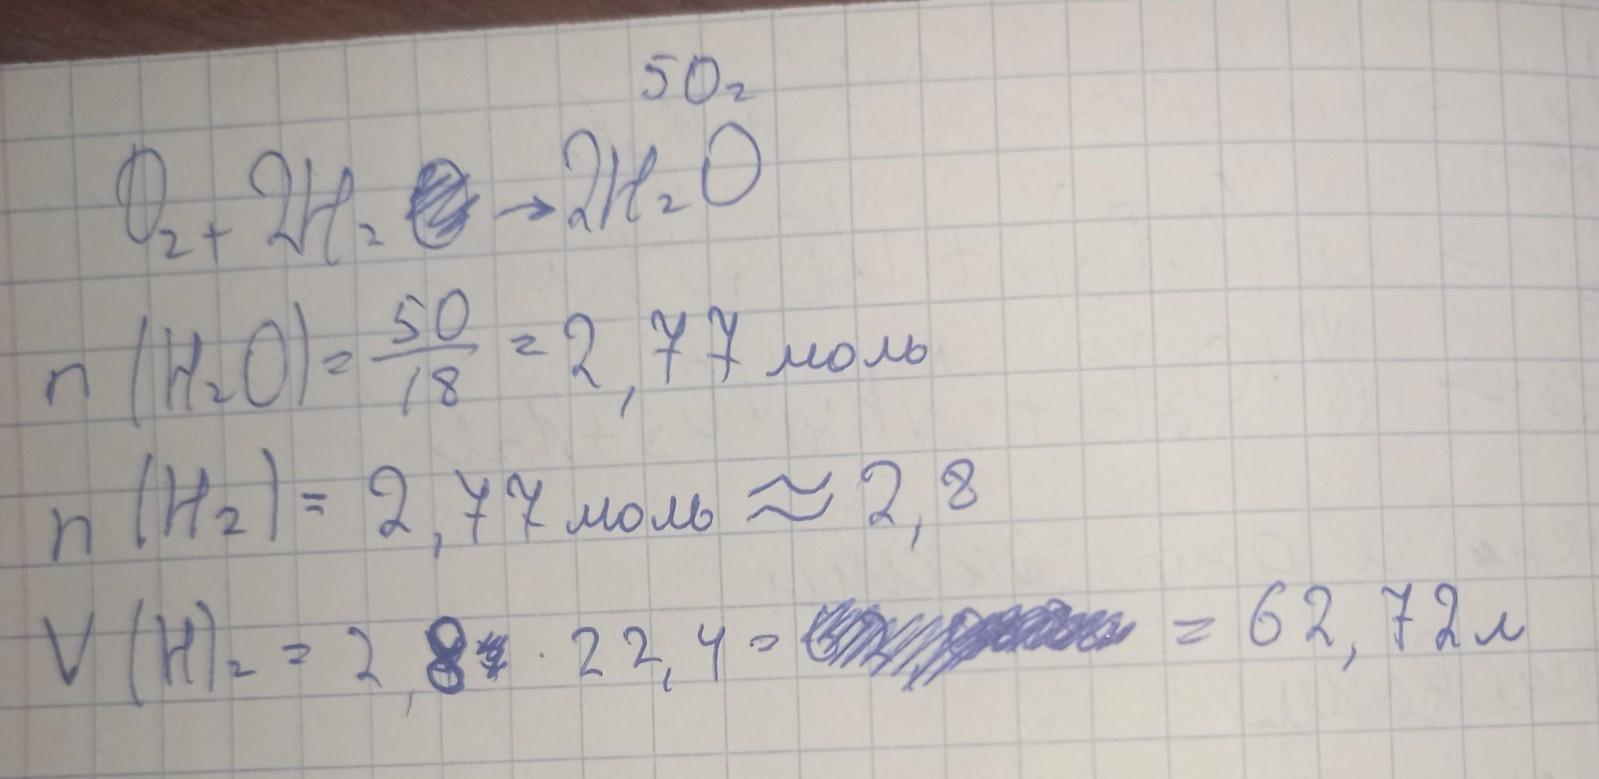 50г
O₂ + 2H₂ → 2H₂O
n (H₂O) = 50/18 = 2,77 моль
n (H₂) = 2,77 моль ≈ 2,8
V (H)₂ = 2,8 · 22,4 = = 62,72 л